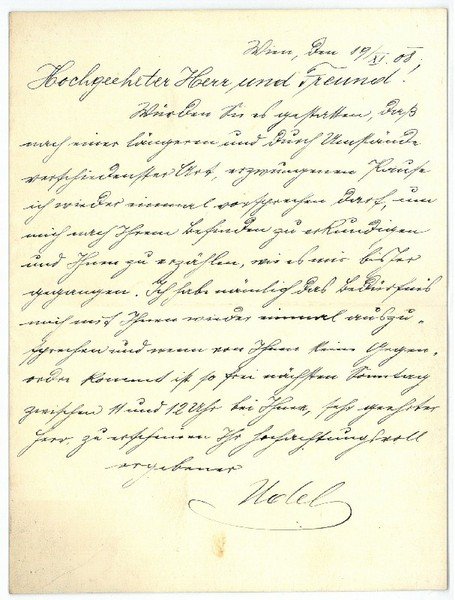 Wien, den 19/XI. 08;
Hochgeehrter Herr und Freund!
Würden Sie es gestatten, daß
nach einer längeren und durch Umstände
verschiedenster Art, erzwungenen Pause
ich wieder einmal vorsprechen darf, um
mich nach Ihrem Befinden zu erkundigen
und Ihnen zu erzählen, wie es mir bisher
gegangen. Ich habe nämlich das Bedürfnis
mich mit Ihnen wieder einmal auszu-
sprechen und wenn von Ihnen keine Gegen-
ordre kommt ist so frei nächsten Sonntag
zwischen 11 und 12 Uhr bei Ihnen, sehr geehrter
Herr, zu erscheinen Ihr hochachtungsvoll
ergebener
Udel